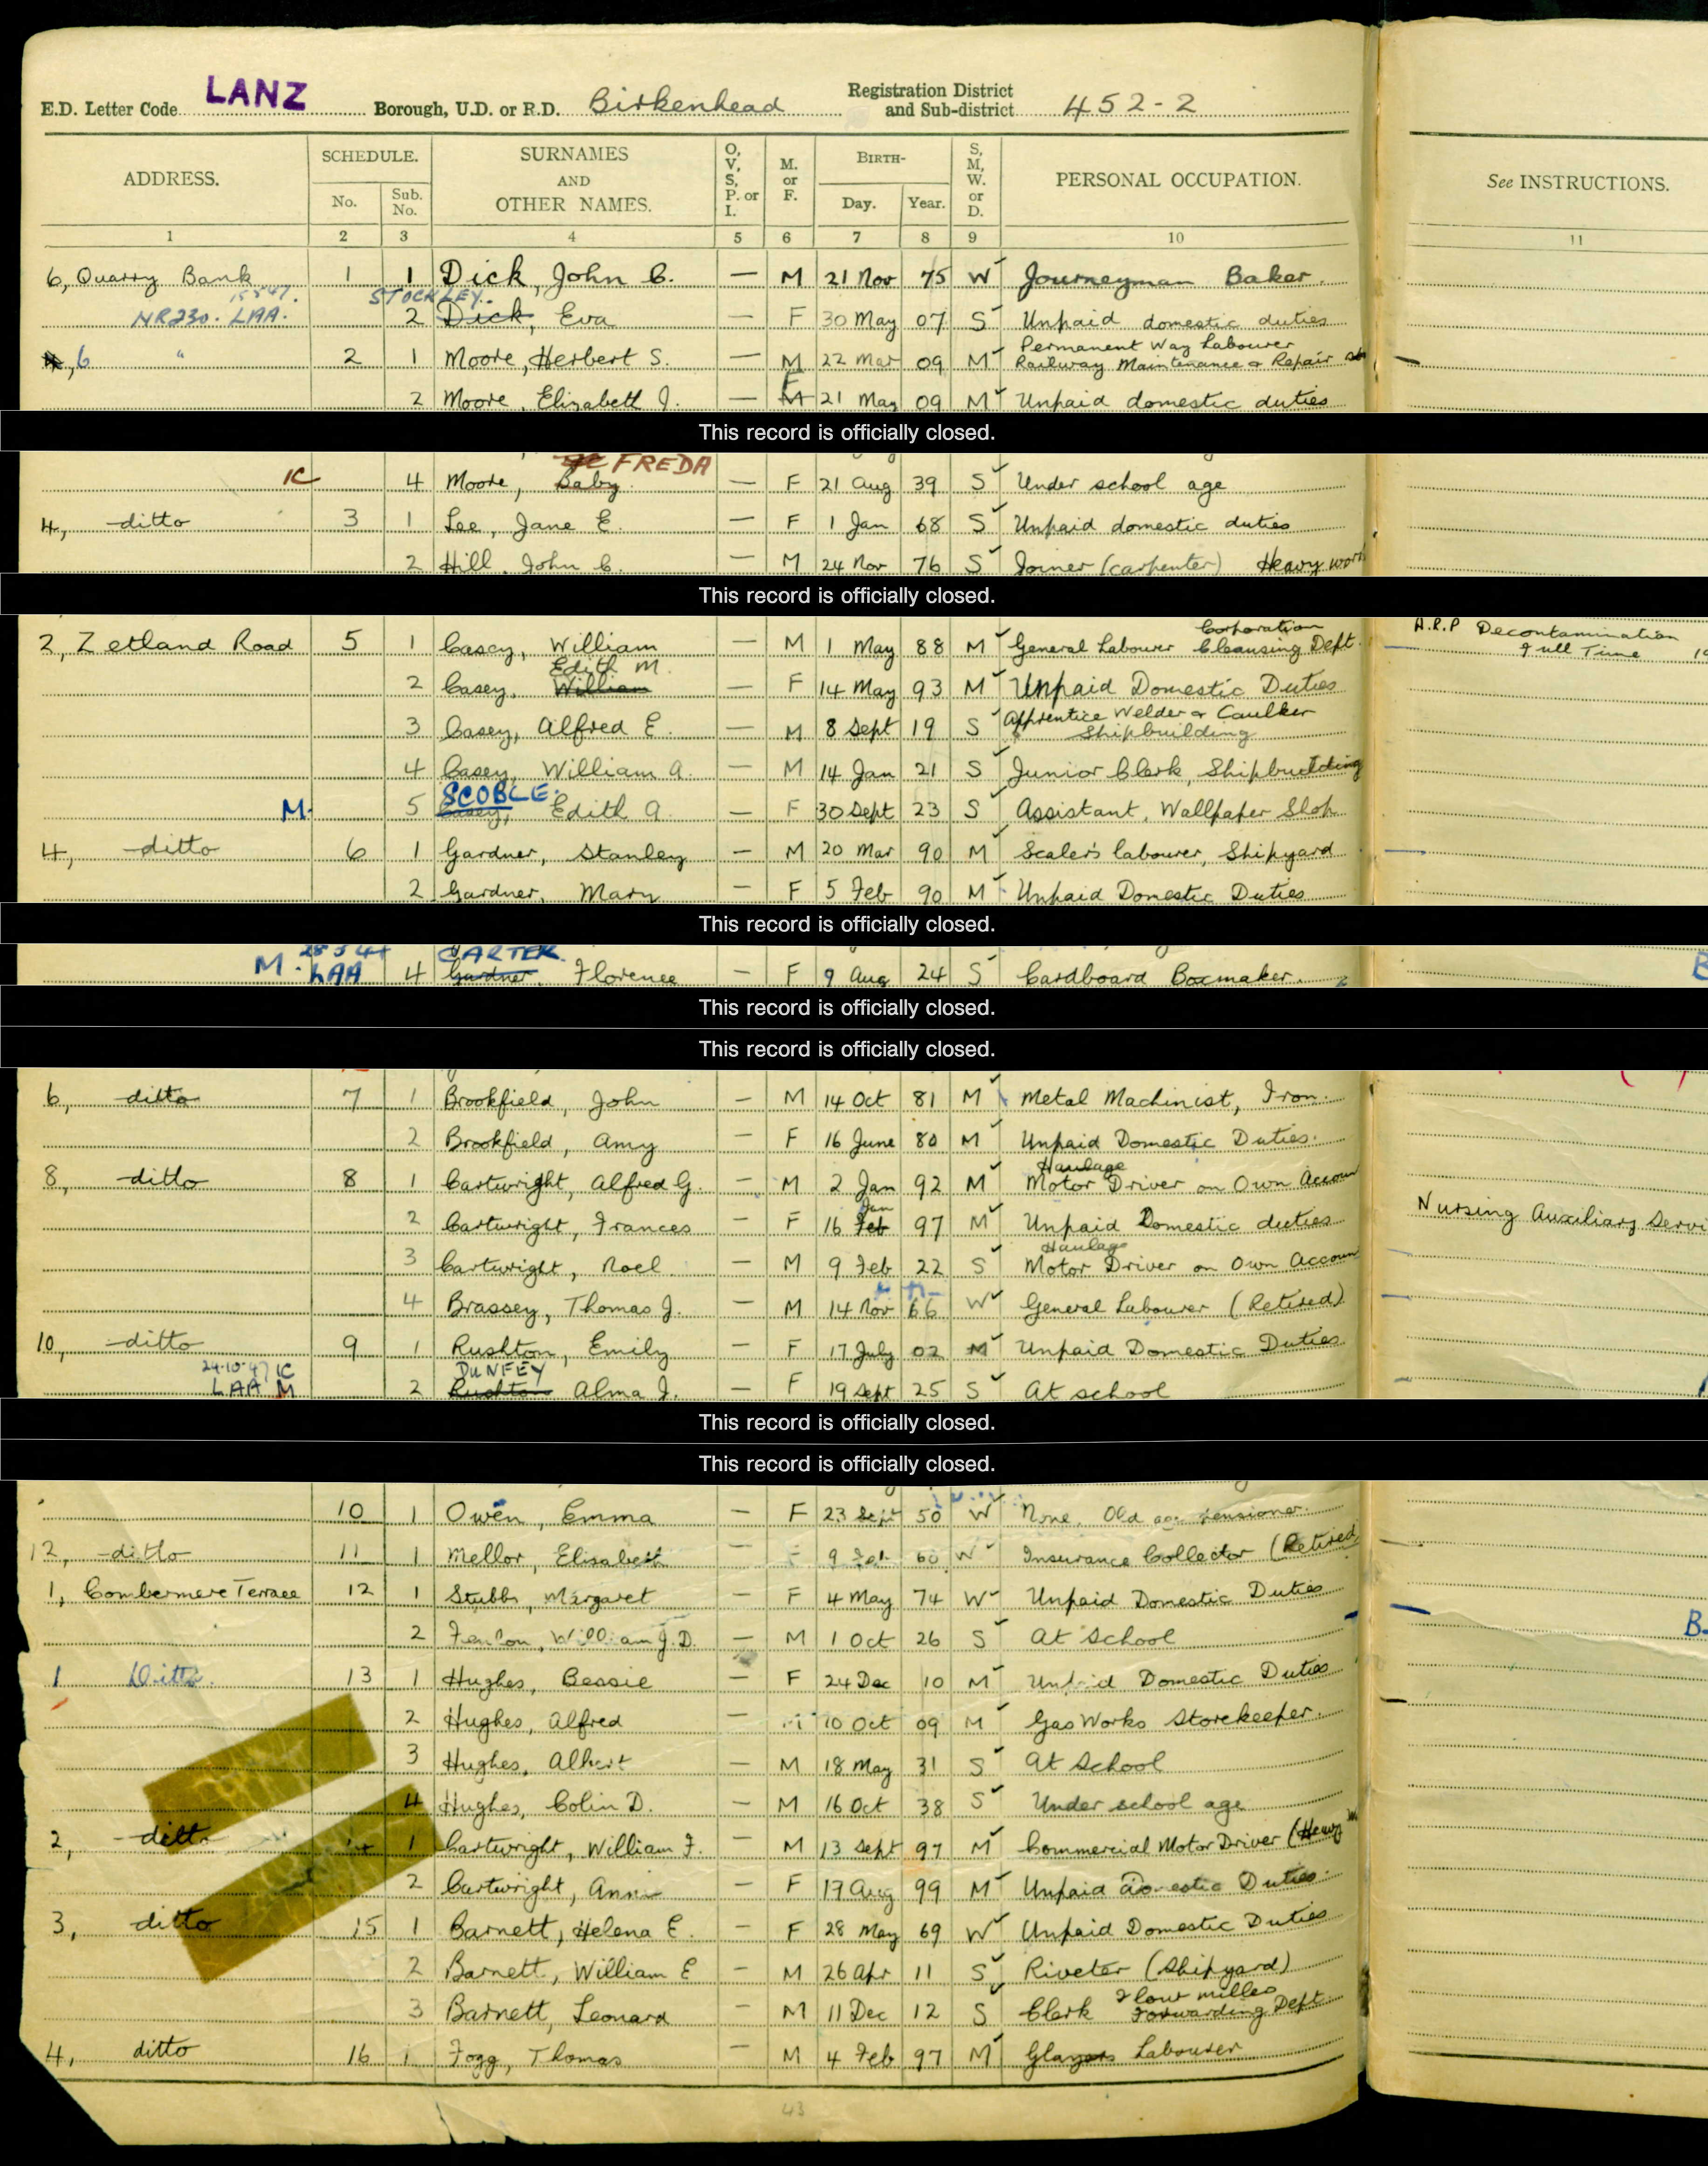 E.D. Letter Code LANZ Borough, U.D. or R.D. Birkenhead Registration District and Sub-district 452-2
ADDRESS. SCHEDULE. No. Sub. No. SURNAMES AND OTHER NAMES. O, V, S, P. or I. M. or F. BIRTH- Day. Year. S, M, W. or D. PERSONAL OCCUPATION. See INSTRUCTIONS.
1 2 3 4 5 6 7 8 9 10 11
6, Quarry Bank 1 1 Dick, John C. — M 21 Nov 75 W Journeyman Baker
STOCKLEY.
NR230. LAA. 2 Dick, Eva — F 30 May 07 S Unpaid domestic duties
Permanent Way Labourer
6 " 2 1 Moore, Herbert S. — M 22 Mar 09 M Railway Maintenance & Repair
F
2 Moore, Elizabeth J. — M 21 May 09 M Unpaid domestic duties
This record is officially closed.
FREDA
IC 4 Moore, Baby — F 21 Aug 39 S Under school age
4, ditto 3 1 Lee, Jane E. — F 1 Jan 68 S Unpaid domestic duties
2 Hill, John C. — M 24 Nov 76 S Joiner (carpenter) Heavy work
This record is officially closed.
Corporation A.R.P Decontamination
2, Zetland Road 5 1 Casey, William — M 1 May 88 M General Labourer Cleansing Dept. Full Time
Edith M.
2 Casey, William — F 14 May 93 M Unpaid Domestic Duties
3 Casey, Alfred E. — M 8 Sept 19 S Apprentice Welder & Caulker
Shipbuilding
4 Casey, William A. — M 14 Jan 21 S Junior Clerk, Shipbuilding
SCOBLE.
M. 5 Casey, Edith A. — F 30 Sept 23 S Assistant, Wallpaper Shop
4, ditto 6 1 Gardner, Stanley — M 20 Mar 90 M Scaler's labourer, Shipyard
2 Gardner, Mary — F 5 Feb 90 M Unpaid Domestic Duties
This record is officially closed.
CARTER
M. LAA 4 Gardner, Florence — F 9 Aug 24 S Cardboard Boxmaker.
This record is officially closed.
This record is officially closed.
6, ditto 7 1 Brookfield, John — M 14 Oct 81 M Metal Machinist, Iron.
2 Brookfield, Amy — F 16 June 80 M Unpaid Domestic Duties.
Haulage
8, ditto 8 1 Cartwright, Alfred G. — M 2 Jan 92 M Motor Driver on Own Accoun
Jan
2 Cartwright, Frances — F 16 Feb 97 M Unpaid Domestic duties Nursing Auxiliary Servi
Haulage
3 Cartwright, Noel — M 9 Feb 22 S Motor Driver on Own Accoun
4 Brassey, Thomas J. — M 14 Nov 66 W General Labourer (Retired)
10, ditto 9 1 Rushton, Emily — F 17 July 02 M Unpaid Domestic Duties
24.10.47 IC DUNFEY
LAA M 2 Rushton Alma J. — F 19 Sept 25 S At school
This record is officially closed.
This record is officially closed.
10 1 Owen, Emma — F 23 Sept 50 W None, Old age pensioner
12, ditto 11 1 Mellor, Elisabeth 9 Feb 60 W Insurance Collector (Retired
1, Combermere Terrace 12 1 Stubbs, Margaret — F 4 May 74 W Unpaid Domestic Duties
2 William J.D. — M 1 Oct 26 S At School
1 Ditto. 13 1 Hughes, Bessie — F 24 Dec 10 M Unpaid Domestic Duties
2 Hughes, Alfred — M 10 Oct 09 M Gas Works Storekeeper.
3 Hughes, Albert — M 18 May 31 S At School
4 Hughes, Colin D. — M 16 Oct 38 S Under school age
2, ditto 14 1 Cartwright, William F. — M 13 Sept 97 M Commercial Motor Driver (Heavy
2 Cartwright, Annie — F 17 Aug 99 M Unpaid Domestic Duties
3, ditto 15 1 Barnett, Helena E. — F 28 May 69 W Unpaid Domestic Duties
2 Barnett, William E — M 26 Apr 11 S Riveter (Shipyard)
Flour milles
3 Barnett, Leonard — M 11 Dec 12 S Clerk Forwarding Dept.
4, ditto 16 1 Fogg, Thomas — M 4 Feb 97 M Labourer
43